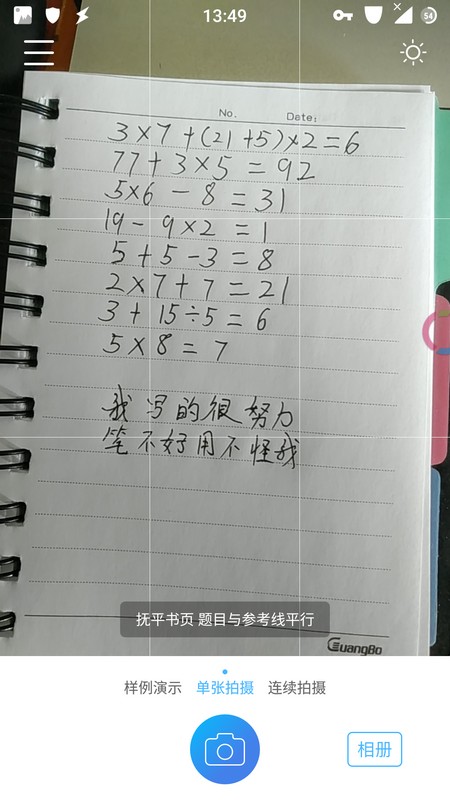 13:49
54
No. Date:
3×7+(21+5)×2=6
77+3×5=92
5×6-8=31
19-9×2=1
5+5-3=8
2×7+7=21
3+15÷5=6
5×8=7
我写的很努力
笔不好用不怪我
抚平书页 题目与参考线平行
GuangBo
样例演示 单张拍摄 连续拍摄
相册